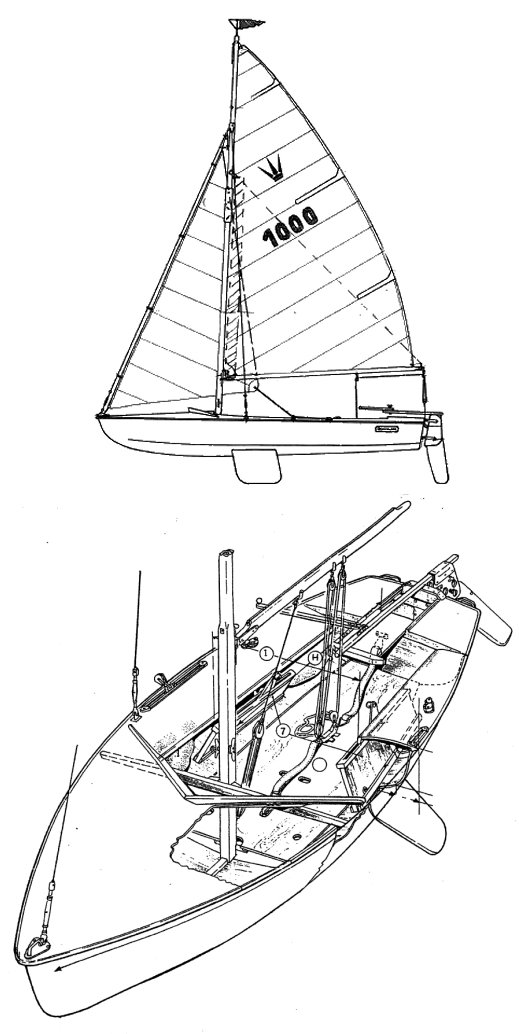 1000
1
H
7